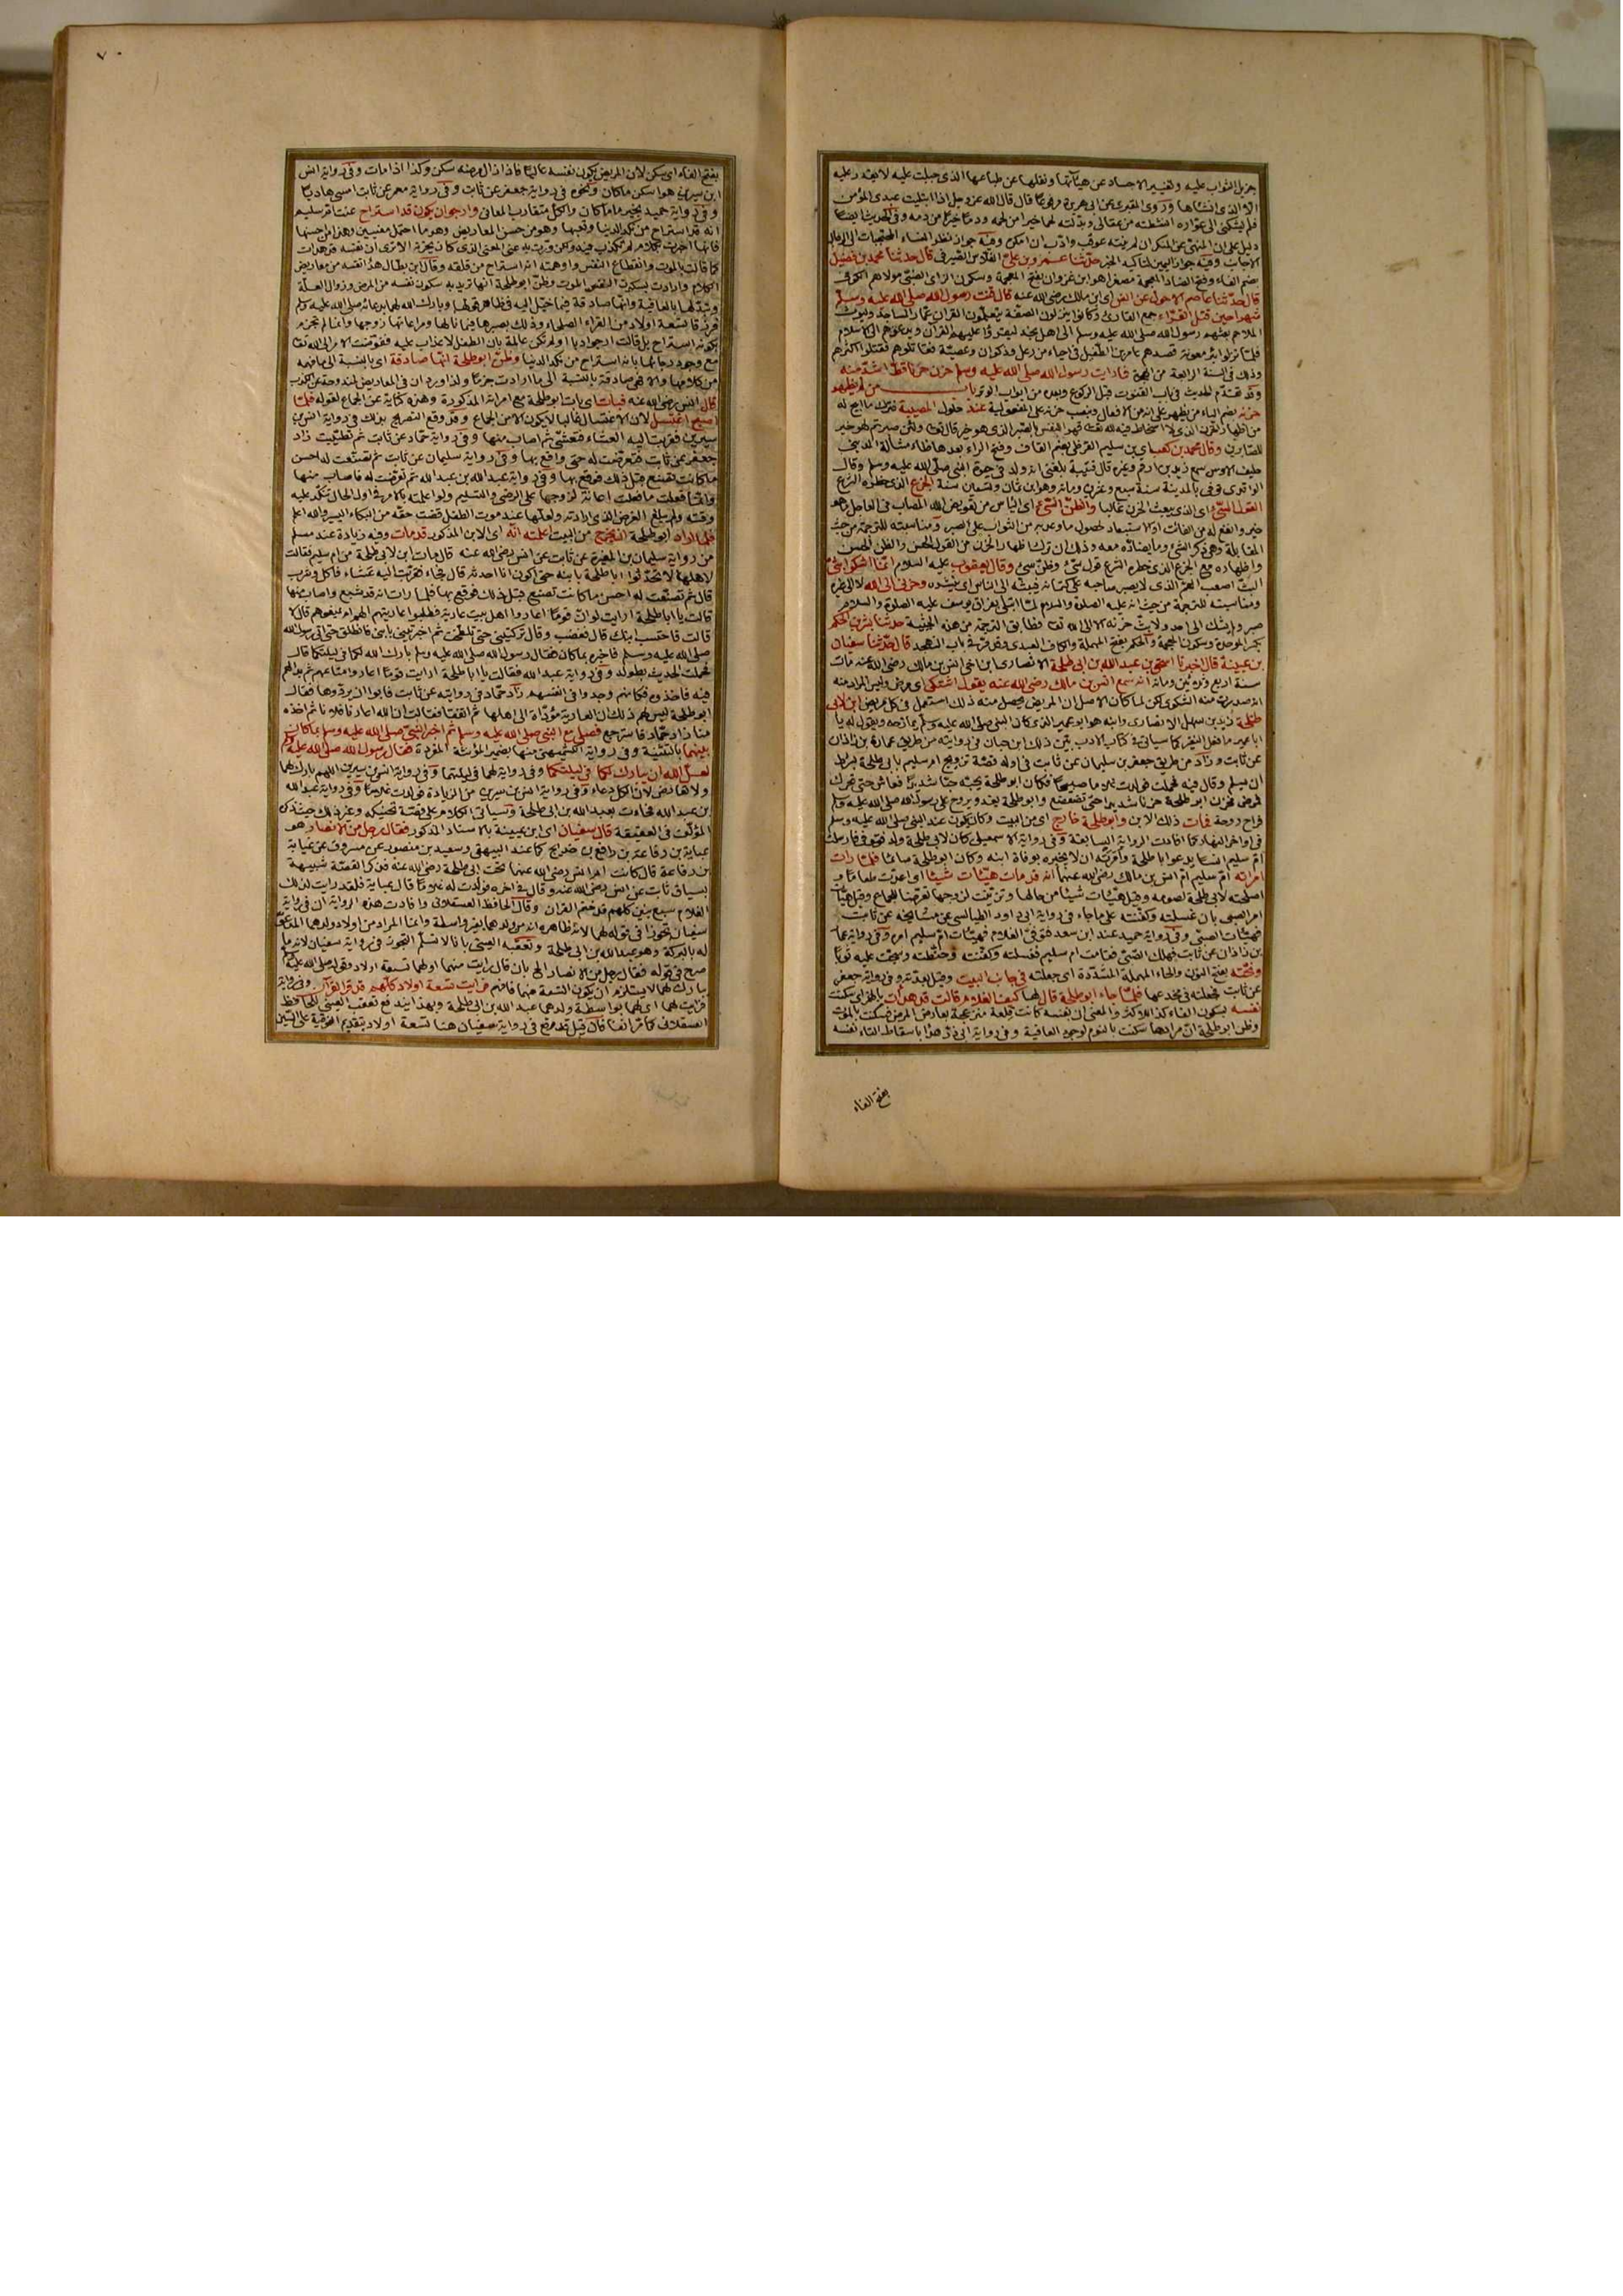 جزيل الثواب عليه وتغيير الاجساد عن هيئاتها ونقلها عن طباعها الذي جبلت عليه لا يقدر عليه
الا الذي انشاها وروى المقبري عن ابي هريرة مرفوعا قال قال الله عز وجل اذا ابتليت عبدي المؤمن
فلم يشكني الى عواده انشطته من عقالي وبدلته لحما خيرا من لحمه ودما خيرا من دمه وفي الحديث ايضا
دليل على ان المنهي عن المنكر ان لم ينته عوقب وادب ان امكن وفيه جواز نظر النساء المحتجبات الى الرجال
الاجانب وفيه جواز اليمين لتاكيد الخبر حدثنا عمرو بن علي الفلاس الصيرفي قال حدثنا محمد بن فضيل
بضم الفاء وفتح الضاد المعجمة مصغرا هو ابن غزوان بفتح المعجمة وسكون الزاي الضبي مولاهم الكوفي
قال حدثنا عاصم الاحول عن انس اي ابن مالك رضي الله عنه قال قنت رسول الله صلى الله عليه وسلم
شهرا حين قتل القراء جمع القارئ وكانوا ينزلون الصفة يتعلمون القران عمار المساجد وليوث
الملاحم بعثهم رسول الله صلى الله عليه وسلم الى اهل نجد ليقرؤا عليهم القران ويدعوهم الى الاسلام
فلما نزلوا بئر معونة قصدهم عامر بن الطفيل في احياء من رعل وذكوان وعصية فقاتلوهم فقتلوا اكثرهم
وذلك في السنة الرابعة من الهجرة فما رايت رسول الله صلى الله عليه وسلم حزن حزنا قط اشد منه
وقد تقدم الحديث في باب القنوت قبل الركوع وبعده من ابواب الوتر باب من لم يظهر
حزنه بضم الياء من يظهر على انه من الافعال وبنصب حزنه على المفعولية عند حلول المصيبة فترك ما ابيح له
من اظهار الحزن الذي لا اسخاط فيه لله تعالى قهرا للنفس بالصبر الذي هو خير قال تعالى ولئن صبرتم لهو خير
للصابرين وقال محمد بن كعب اي بن سليم القرظي بضم القاف وفتح الراء بعدها ظاء مشالة المدني
حليف الاوس سمع زيد بن ارقم وغيره قال قتيبة بلغني انه ولد في حيوة النبي صلى الله عليه وسلم وقال
الواقدي توفي بالمدينة سنة سبع وعشرين ومائة وهو ابن ثمان وسبعين سنة الجزع الذي حظره الشرع
القول السيئ اي الذي يبعث الحزن غالبا والظن السيئ اي الياس من تعويض الله المصاب في العاجل ما هو
خير وانفع له من الفائت او الاستبعاد لحصول ما وعد به من الثواب على الصبر ومناسبته للترجمة من حيث
المقابلة وهي ذكر الشئ وما يضاده معه وذلك ان ترك اظهار الحزن من القول الحسن والظن الحسن
واظهاره مع الجزع الذي حظره الشرع قول سيئ وظن سيئ وقال يعقوب عليه السلام انما اشكو بثي
البث اصعب الهم الذي لا يصبر صاحبه على كتمانه فيبثه الى الناس اي ينشره وحزني الى الله لا الى غيره
ومناسبته للترجمة من حيث انه عليه الصلوة والسلام لما ابتلي بفراق يوسف عليه الصلوة والسلام
صبر ولم يشك الى احد ولا بث حزنه الا الى الله تعالى فطابق الترجمة من هذه الحيثية حدثنا بشر بن الحكم
بكسر الموحدة وسكون المعجمة والحكم بفتح المهملة والكاف العبدي وقد مر في باب التهجد قال حدثنا سفيان
بن عيينة قال اخبرنا اسحق بن عبد الله بن ابي طلحة الانصاري ابن اخي انس بن مالك رضي الله عنه مات
سنة اربع وثلاثين ومائة انه سمع انس بن مالك رضي الله عنه يقول اشتكى اي مرض وليس المراد منه
انه صدرت منه الشكوى لكن لما كان الاصل ان المريض يحصل منه ذلك استعمل في كل مريض ابن لابي
طلحة زيد بن سهل الانصاري وابنه هو ابو عمير الذي كان النبي صلى الله عليه وسلم يمازحه ويقول له يا
ابا عمير ما فعل النغير كما سياتي في كتاب الادب بين ذلك ابن حبان في روايته من طريق عمارة بن زاذان
عن ثابت وزاد من طريق جعفر بن سليمان عن ثابت في اوله قصة تزويج ام سليم بابي طلحة بشرط
ان يسلم وقال فيه فحملت فولدت غلاما صبيحا فكان ابو طلحة يحبه حبا شديدا فعاش حتى تحرك
فمرض فحزن ابو طلحة حزنا شديدا حتى تضعضع وابو طلحة يغدو ويروح على رسول الله صلى الله عليه وسلم
فراح روحة فمات ذلك الابن وابو طلحة خارج اي من البيت وكان يكون عند النبي صلى الله عليه وسلم
في اواخر النهار كما افادت الرواية السابقة وفي رواية الاسمعيلي كان لابي طلحة ولد فتوفي فارسلت
ام سليم انسا يدعو ابا طلحة وامرته ان لا يخبره بوفاة ابنه وكان ابو طلحة صائما فلما رات
امراته ام سليم ام انس بن مالك رضي الله عنهما انه قد مات هيئات شيئا اي اعدت طعاما و
اصلحته لابي طلحة لصومه وقيل هيئات شيئا من حالها وتزينت لزوجها تعرضا للجماع وقيل هيات
امر الصبي بان غسلته وكفنته على ما جاء في رواية ابي داود الطيالسي عن مشايخه عن ثابت
فهيئات الصبي وفي رواية حميد عند ابن سعد فتوفي الغلام فهيئات ام سليم امره وفي رواية عمارة
بن زاذان عن ثابت فهلك الصبي فقامت ام سليم فغسلته وكفنته وحنطته وسجت عليه ثوبا
ونحته بفتح النون والحاء المهملة المشددة اي جعلته في جانب البيت وقيل بعدته وفي رواية جعفر
عن ثابت فجعلته في مخدعها فلما جاء ابو طلحة قال لها كيف الغلام قالت قد هدات بالهمز اي سكنت
نفسه بسكون الفاء كذا للاكثر والمعنى ان نفسه كانت قلقة منزعجة بعارض المرض فسكنت بالموت
وظن ابو طلحة ان مرادها سكنت بالنوم لوجود العافية وفي رواية ابي ذر هدا باسقاط التاء نفسه
بفتح الفاء
٧٠
بفتح الفاء اي سكن لان المريض يكون نفسه عاليا فاذا زال مرضه سكن وكذا اذا مات وفي رواية انس
ابن سيرين هو اسكن ما كان ونحوه في رواية جعفر عن ثابت وفي رواية معمر عن ثابت امسى هاديا
وفي رواية حميد بخير ما كان والكل متقارب المعاني وارجو ان يكون قد استراح عنت ام سليم
انه قد استراح من نكد الدنيا وتعبها وهو من حسن المعاريض وهو ما احتمل معنيين وهذا من احسنها
فانها اخبرت بكلام لم تكذب فيه ولكن ورت به عن المعنى الذي كان يحزنه الا ترى ان نفسه قد هدات
كما قالت بالموت وانقطاع النفس واوهمته انه استراح من قلقه وقال ابن بطال هدا نفسه من معاريض
الكلام وارادت بسكون النفس الموت وظن ابو طلحة انها تريد به سكون نفسه من المرض وزوال العلة
وتبدلها بالعافية وانها صادقة فيما خيل اليه في ظاهر قولها وبارك الله لهما بدعائه صلى الله عليه وسلم
فرزقا تسعة اولاد من القراء الصلحاء وذلك بصبرها فيما نالها ومراعاتها زوجها وانما لم تجزم
بكونه استراح بل قالت ارجو ادبا او لم تكن عالمة بان الطفل لا عذاب عليه ففوضت الامر الى الله تعالى
مع وجود رجائها بانه استراح من نكد الدنيا وظن ابو طلحة انها صادقة اي بالنسبة الى ما فهمه
من كلامها والا فهي صادقة بالنسبة الى ما ارادت جزما ولذا ورد ان في المعاريض لمندوحة عن الكذب
قال انس رضي الله عنه فبات اي بات ابو طلحة مع امراته المذكورة وهذه كناية عن الجماع لقوله فلما
اصبح اغتسل لان الاغتسال غالبا لا يكون الا من الجماع وقد وقع التصريح بذلك في رواية انس بن
سيرين فقربت اليه العشاء فتعشى ثم اصاب منها وفي رواية حماد عن ثابت ثم تطيبت زاد
جعفر عن ثابت فتعرضت له حتى واقع بها وفي رواية سليمان عن ثابت ثم تصنعت له احسن
ما كانت تصنع قبل ذلك فوقع بها وفي رواية عبد الله بن عبد الله ثم تعرضت له فاصاب منها
وانما فعلت ما فعلت اعانة لزوجها على الرضى والتسليم ولو اعلمته بالامر في اول الحال تنكد عليه
وقته ولم يبلغ الغرض الذي ارادته ولعلها عند موت الطفل قضت حقه من البكاء اليسير والله اعلم
فلما اراد ابو طلحة ان يخرج من البيت اعلمته انه اي الابن المذكور قد مات وفيه زيادة عند مسلم
من رواية سليمان بن المغيرة عن ثابت عن انس رضي الله عنه قال مات ابن لابي طلحة من ام سليم فقالت
لاهلها لا تحدثوا ابا طلحة بابنه حتى اكون انا احدثه قال فجاء فقربت اليه عشاء فاكل وشرب
قال ثم تصنعت له احسن ما كانت تصنع قبل ذلك فوقع بها فلما رات انه قد شبع واصاب منها
قالت يا ابا طلحة ارايت لو ان قوما اعاروا اهل بيت عارية فطلبوا عاريتهم الهم ان يمنعوهم قال لا
قالت فاحتسب ابنك قال فغضب وقال تركتيني حتى تلطخت ثم اخبرتيني بابني فانطلق حتى اتى رسول الله
صلى الله عليه وسلم فاخبره بما كان فقال رسول الله صلى الله عليه وسلم بارك الله لكما في ليلتكما قال
فحملت الحديث بطوله وفي رواية عبد الله فقالت يا ابا طلحة ارايت قوما اعاروا متاعهم ثم بدا لهم
فيه فاخذوه فكانهم وجدوا في انفسهم زاد حماد في روايته عن ثابت فابوا ان يردوها فقال
ابو طلحة ليس لهم ذلك ان العارية مؤداة الى اهلها ثم اتفقا فقالت ان الله اعارنا فلانا ثم اخذه
منا زاد حماد فاسترجع فصلى مع النبي صلى الله عليه وسلم ثم اخبر النبي صلى الله عليه وسلم بما كان
بينهما بالتثنية وفي رواية الكشميهني منها بضمير المؤنثة المفردة فقال رسول الله صلى الله عليه وسلم
لعل الله ان يبارك لكما في ليلتكما وفي رواية لهما في ليلتهما وفي رواية انس بن سيرين اللهم بارك لهما
ولا تعارض لان الكل دعاء وفي رواية انس بن سيرين من الزيادة فولدت غلاما وفي رواية عبد الله
بن عبد الله فجاءت بعبد الله بن ابي طلحة وسياتي الكلام على قصة تحنيكه وغير ذلك حيث ذكره
المؤلف في العقيقة قال سفيان اي ابن عيينة بالاسناد المذكور فقال رجل من الانصار هو
عباية بن رفاعة بن رافع بن خديج كما عند البيهقي وسعيد بن منصور عن مسروق عن عباية
بن رفاعة قال كانت ام انس رضي الله عنهما تحت ابي طلحة رضي الله عنه فذكر القصة شبيهة
بسياق ثابت عن انس رضي الله عنه وقال في اخره فولدت له غلاما قال عباية فلقد رايت لذلك
الغلام سبع بنين كلهم قد ختم القران وقال الحافظ العسقلاني وافادت هذه الرواية ان في رواية
سفيان تجوزا في قوله لهما لان ظاهره انه من ولدهما بغير واسطة وانما المراد من اولاد ولدهما المدعو
له بالبركة وهو عبد الله بن ابي طلحة وتعقبه العيني بانا لا نسلم التجوز في رواية سفيان لانه ما
صرح في قوله فقال رجل من الانصار الى بان قال رايت منهما او لهما تسعة اولاد وقوله صلى الله عليه وسلم
يبارك لهما لا يستلزم ان يكون التسعة منهما فافهم فرايت تسعة اولاد كلهم قد قرا القرآن وفي رواية
فرايت لهما اي لهما بواسطة ولدهما عبد الله بن ابي طلحة وبهذا يندفع تعقب العيني للحافظ
العسقلاني كما مر انفا فان قيل قد وقع في رواية سفيان هنا تسعة اولاد بتقديم الفوقية على السين